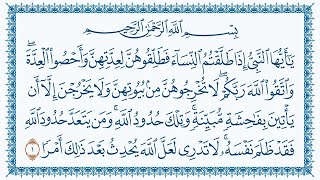 بِسْمِ اللَّهِ الرَّحْمَٰنِ الرَّحِيمِ
يَا أَيُّهَا النَّبِيُّ إِذَا طَلَّقْتُمُ النِّسَاءَ فَطَلِّقُوهُنَّ لِعِدَّتِهِنَّ وَأَحْصُوا الْعِدَّةَ ۖ
وَاتَّقُوا اللَّهَ رَبَّكُمْ ۖ لَا تُخْرِجُوهُنَّ مِن بُيُوتِهِنَّ وَلَا يَخْرُجْنَ إِلَّا أَن
يَأْتِينَ بِفَاحِشَةٍ مُّبَيِّنَةٍ ۚ وَتِلْكَ حُدُودُ اللَّهِ ۚ وَمَن يَتَعَدَّ حُدُودَ اللَّهِ
فَقَدْ ظَلَمَ نَفْسَهُ ۚ لَا تَدْرِي لَعَلَّ اللَّهَ يُحْدِثُ بَعْدَ ذَٰلِكَ أَمْرًا ١